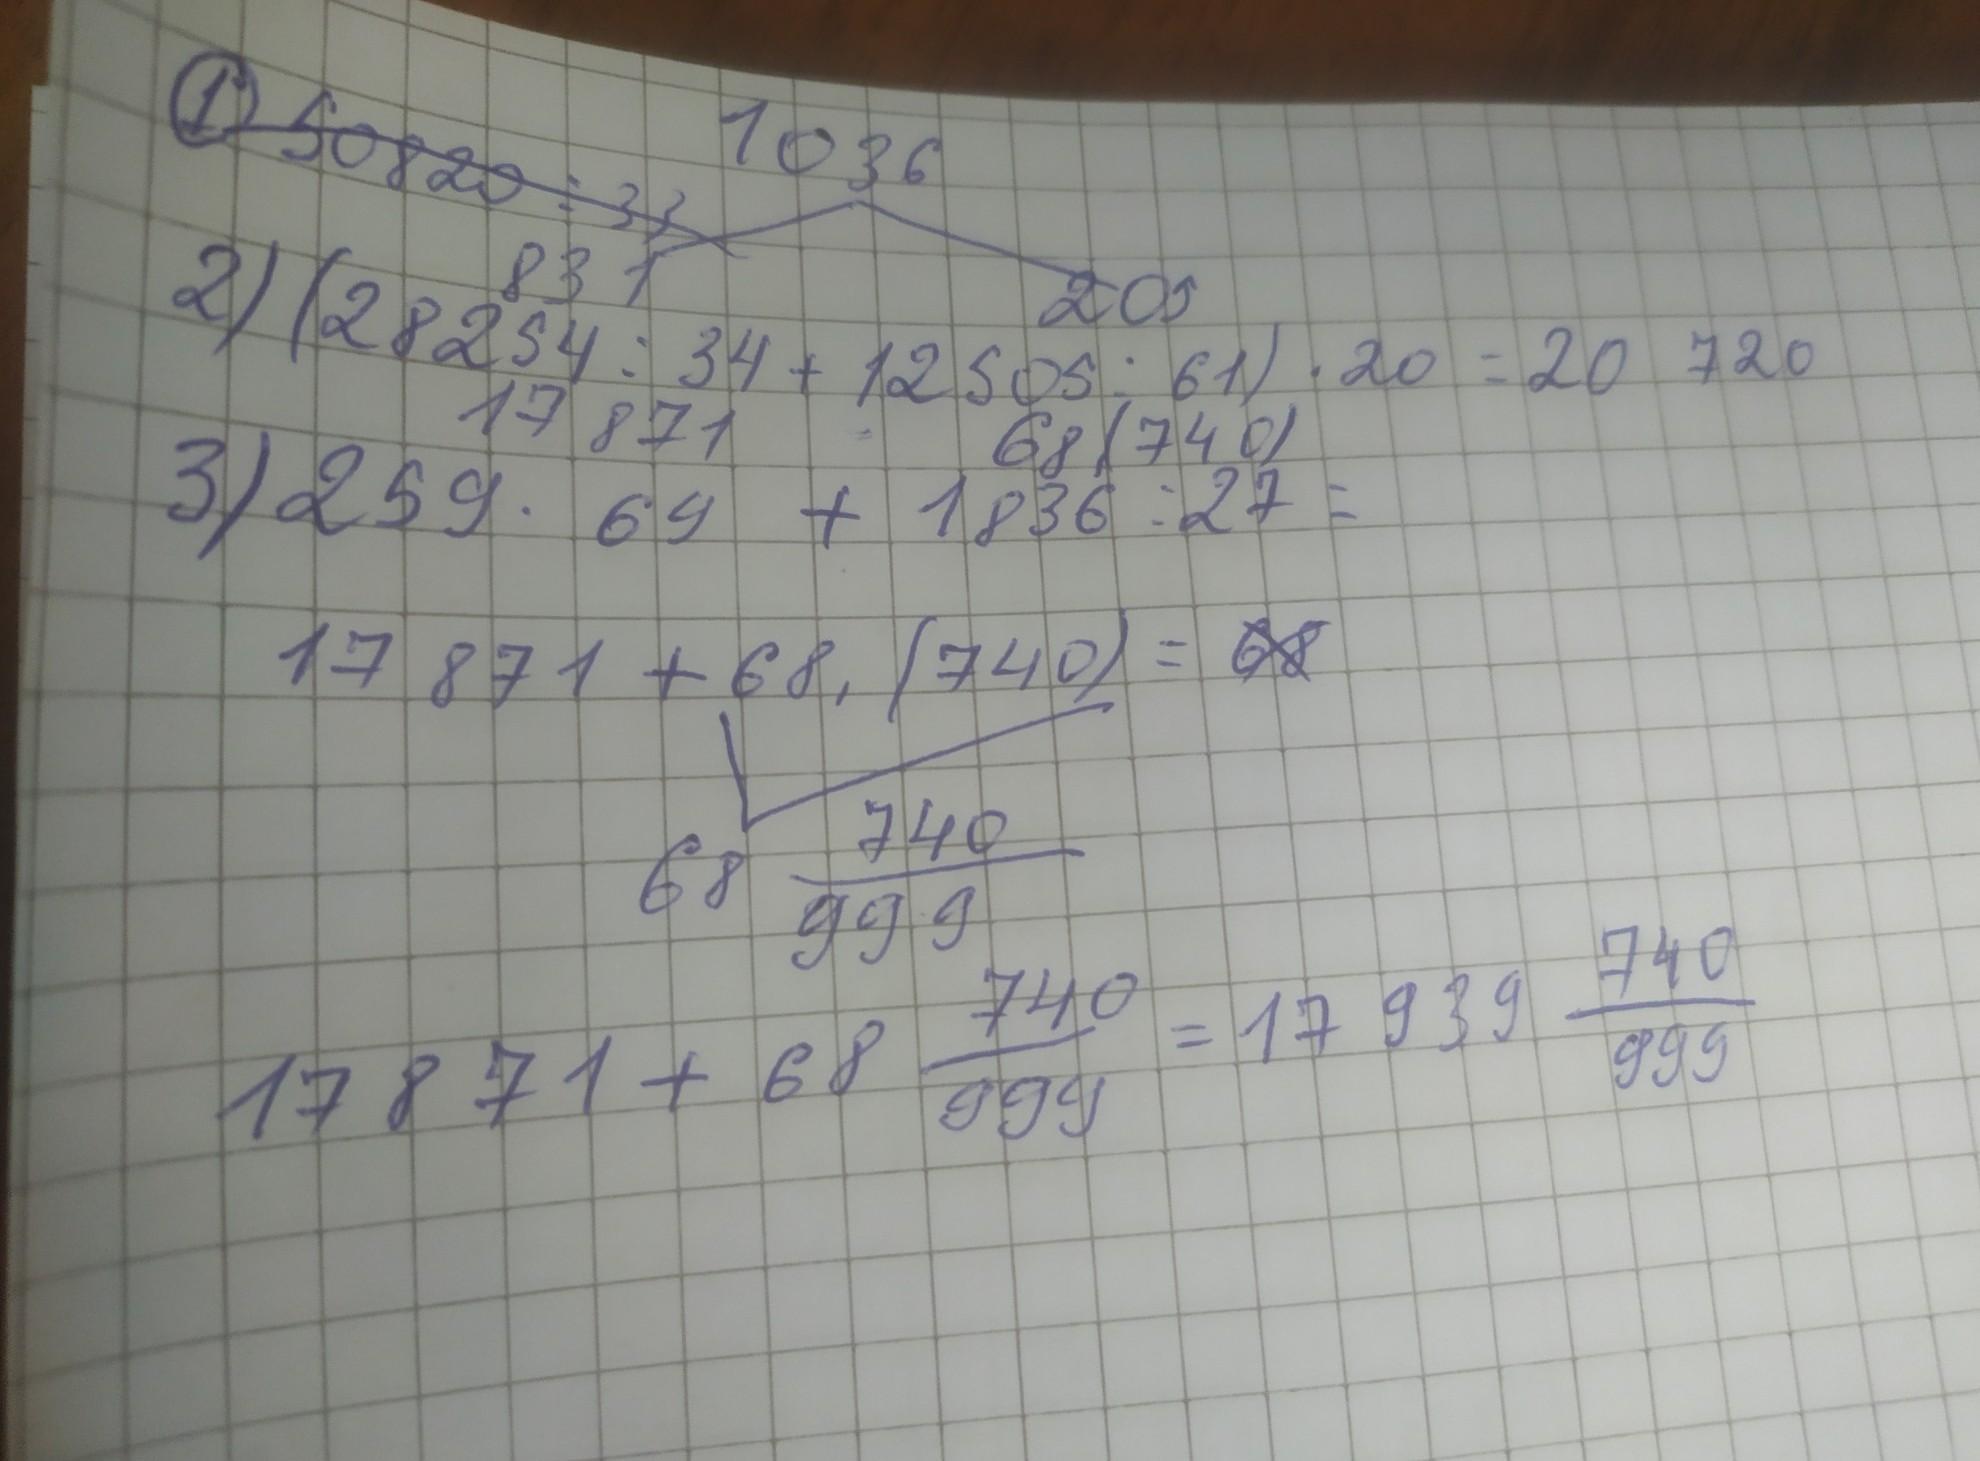 1) 50820 : 33
1036
831 205
2) (28254 : 34 + 12505 : 61) · 20 = 20 720
17 871 68(740)
3) 259 · 69 + 1836 : 27 =
17 871 + 68,(740) = 68
68 740/999
17 871 + 68 740/999 = 17 939 740/999